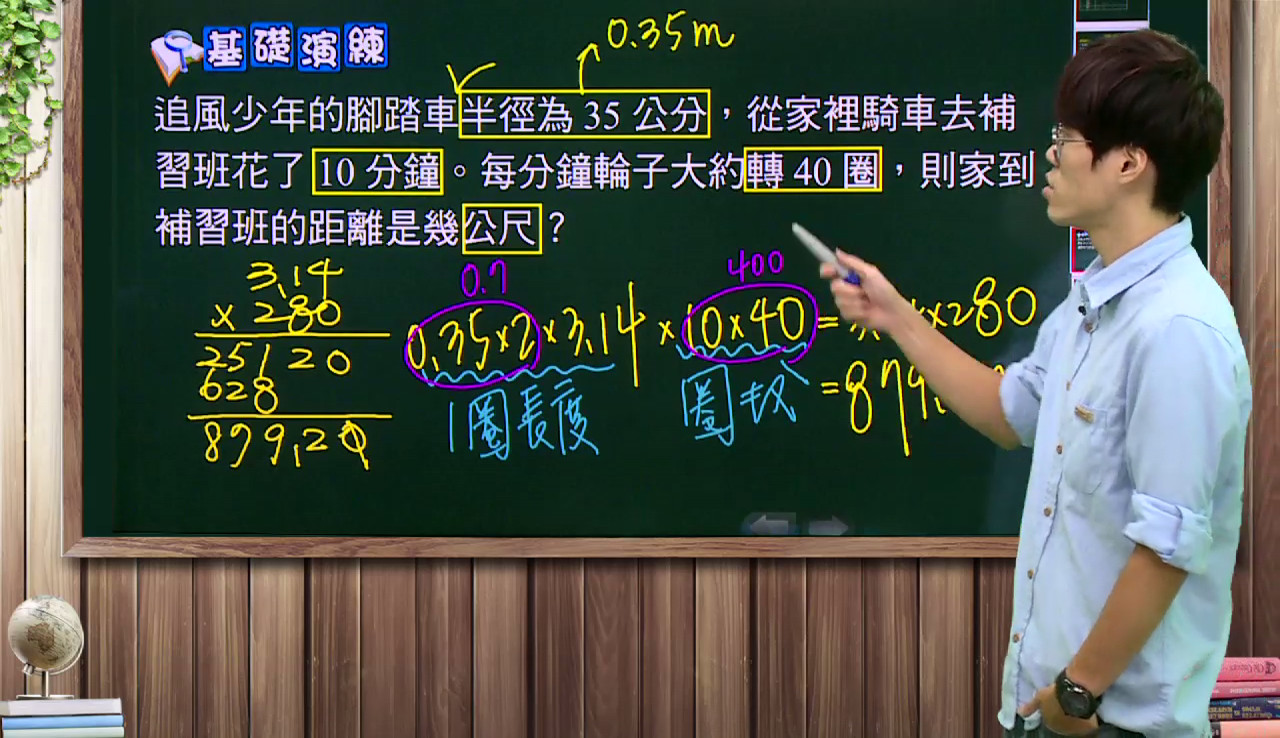 基礎演練
0.35m
追風少年的腳踏車半徑為 35 公分，從家裡騎車去補
習班花了 10 分鐘。每分鐘輪子大約轉 40 圈，則家到
補習班的距離是幾公尺？
3.14
× 280
25120
628
879.20
0.7
400
0.35×2×3.14×10×40=
×280
=879.
1圈長度
圈數